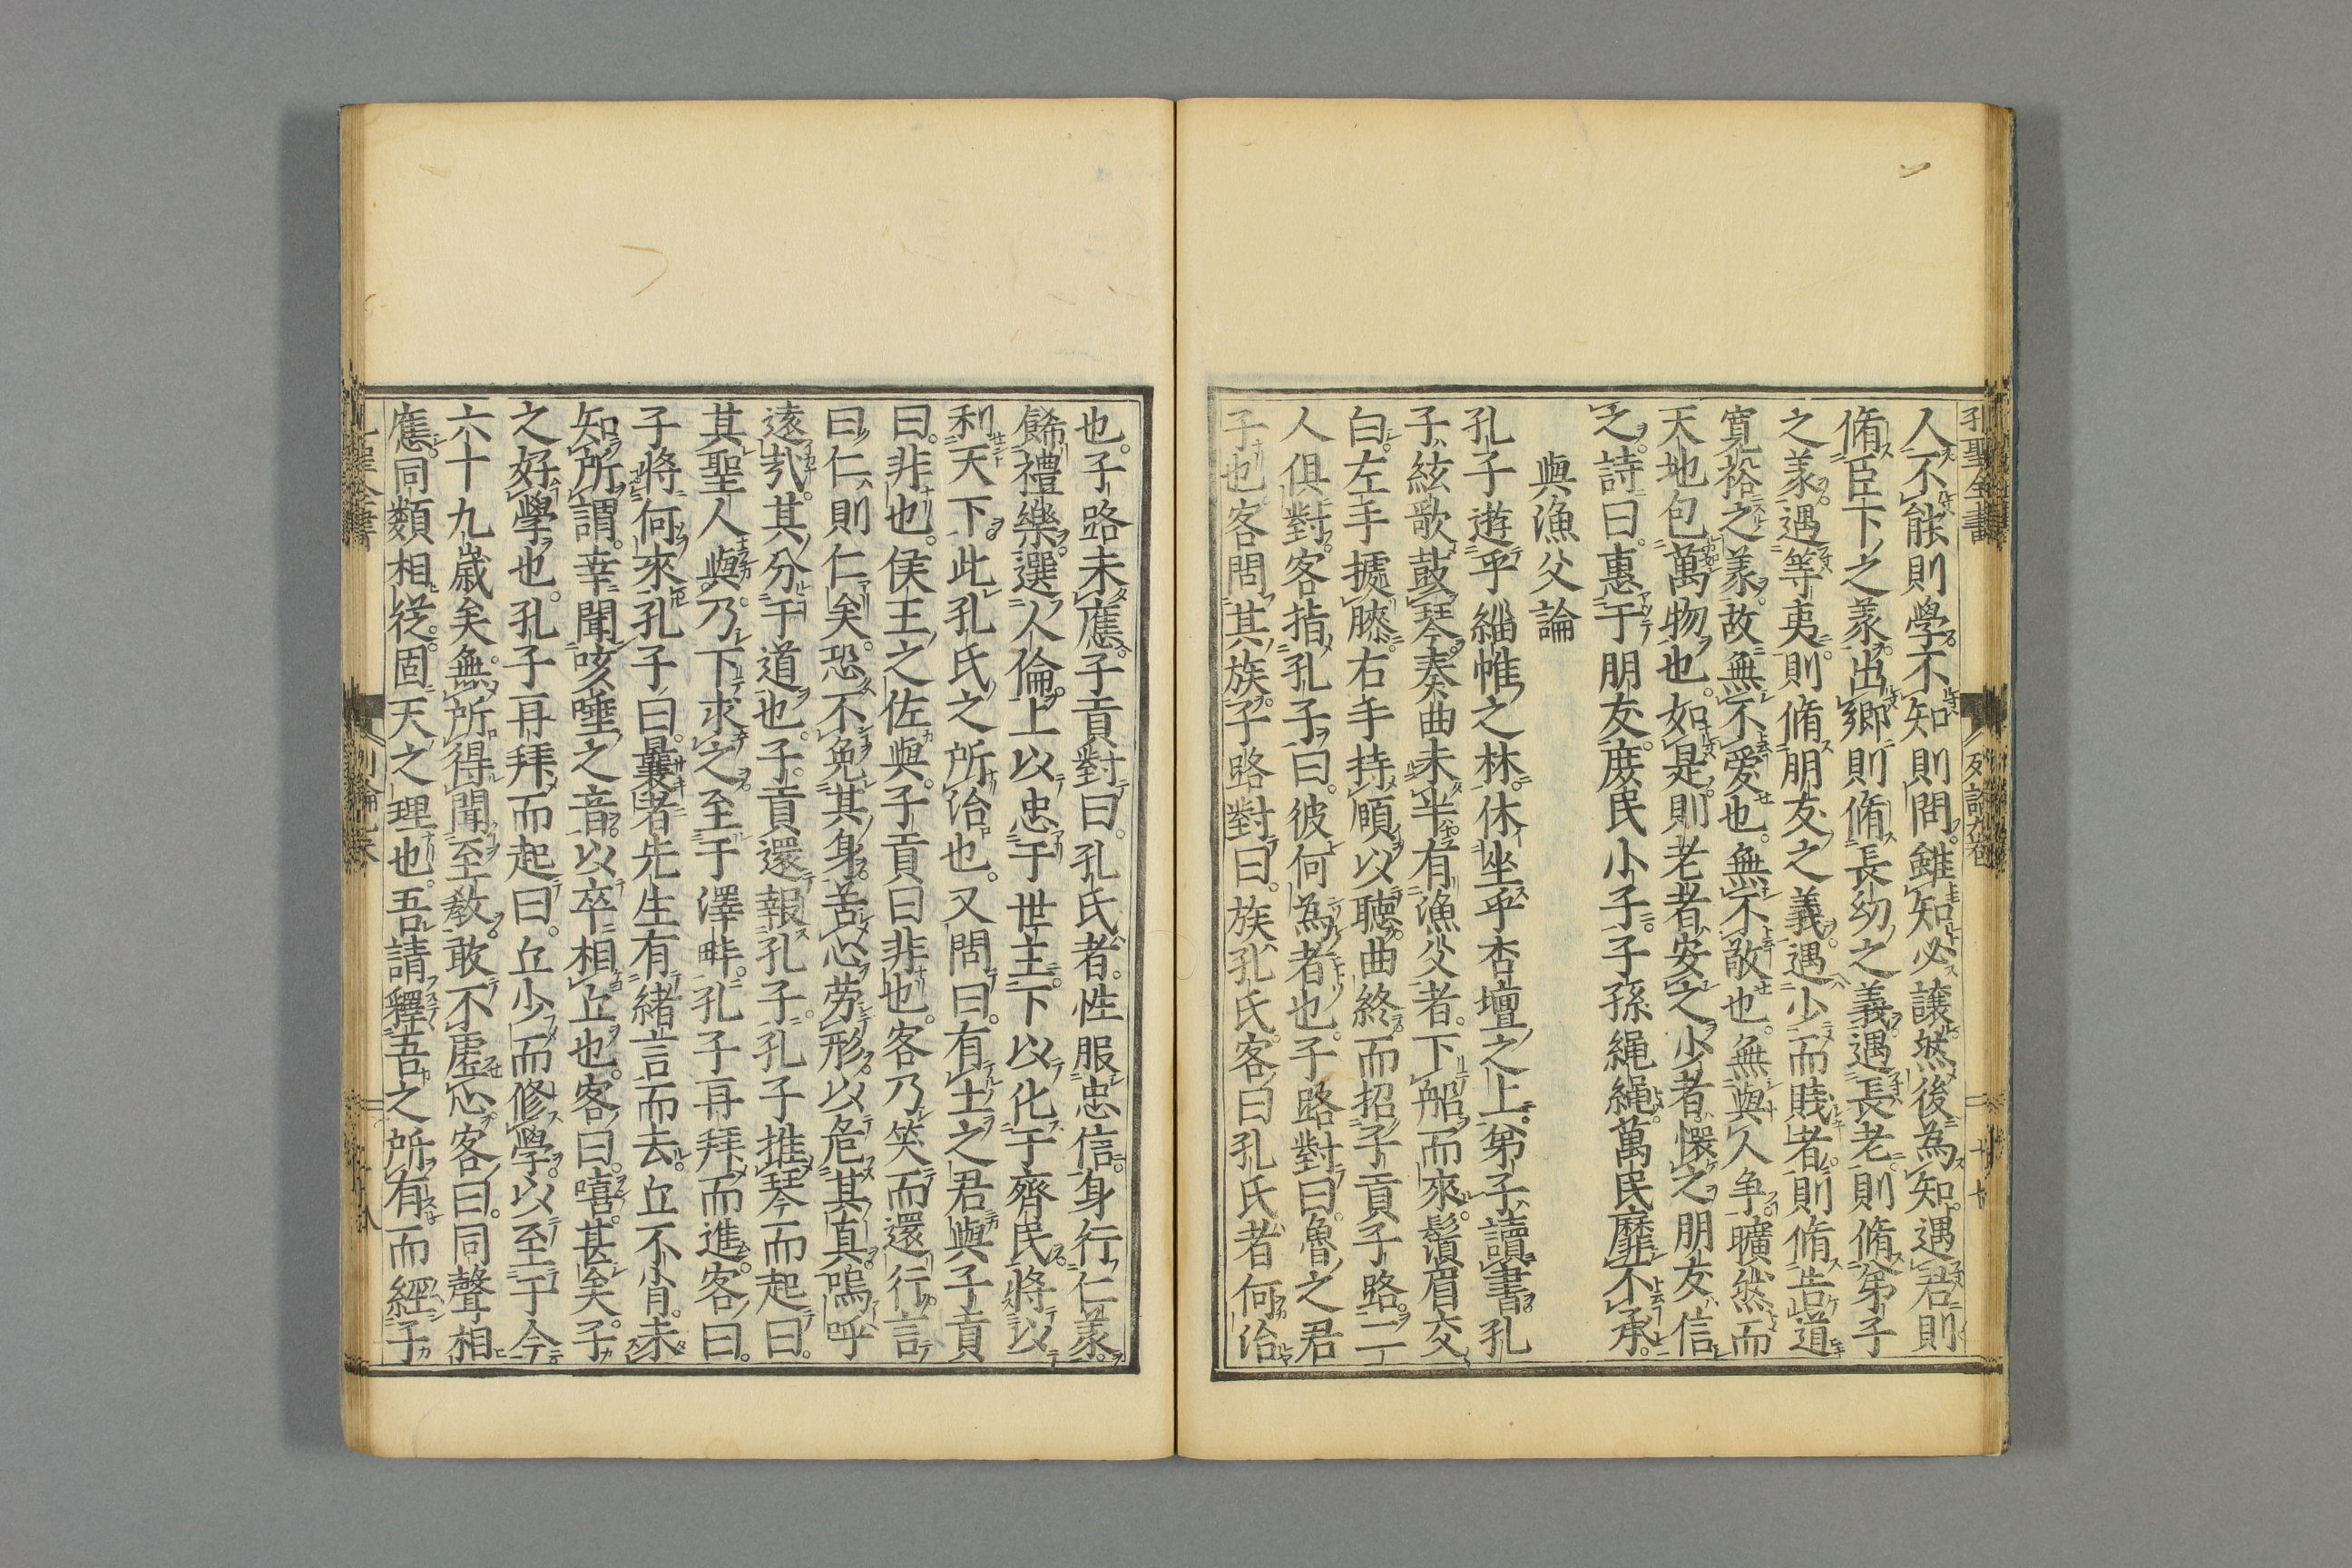 孔聖全書
人不能則學不知則問雖知必讓然後為知遇君則
脩臣下之義出鄉則脩長幼之義遇長老則脩弟子
之義遇等夷則脩朋友之義遇少而賤者則脩告道
寬裕之義故無不愛也無不敬也無與人争曠然而
天地包萬物也如是則老者安之少者懷之朋友信
之詩曰惠于朋友庶民小子子孫繩繩萬民靡不承
與漁父論
孔子遊乎緇帷之林休坐乎杏壇之上弟子讀書孔
子絃歌鼓琴奏曲未半有漁父者下船而來鬚眉交
白左手據膝右手持頤以聽曲終而招子貢子路二
人俱對客指孔子曰彼何為者也子路對曰魯之君
子也客問其族子路對曰族孔氏客曰孔氏者何治
也子路未應子貢對曰孔氏者性服忠信身行仁義
餙禮樂選人倫上以忠于世主下以化于齊民將以
利天下此孔氏之所治也又問曰有土之君與子貢
曰非也侯王之佐與子貢曰非也客乃笑而還行言
曰仁則仁矣恐不免其身苦心劳形以危其真嗚呼
遠哉其分于道也子貢還報孔子孔子推琴而起曰
其聖人與乃下求之至于澤畔孔子再拜而進客曰
子將何來孔子曰曩者先生有緒言而去丘不肖未
知所謂幸聞咳唾之音以卒相丘也客曰嘻甚矣子
之好學也孔子再拜而起曰丘少而修學以至于今
六十九歳矣無所得聞至教敢不虚心客曰同聲相
應同類相從固天之理也吾請釋吾之所有而經子